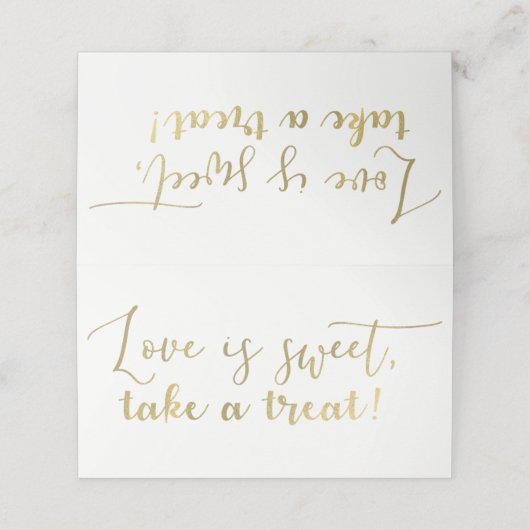 take a treat!
Love is sweet,
Love is sweet,
take a treat!